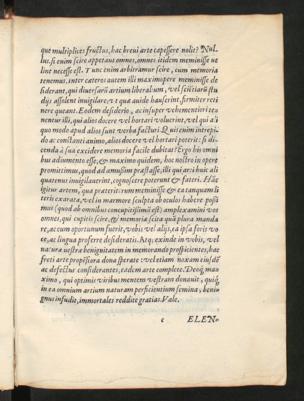 que multiplices fructus, hac brevi arte capessere nolit? Nul
lus. si enim scire appetant omnes, omnes itidem meminisse ve
lint necesse est. Tunc enim arbitramur scire, cum memoria
tenemus. inter cateros autem illi maximopere meminisse de
siderant, qui diversarũ artium liberaliũ, vel sciẽtiarũ stu
dijs assident invigilare, vt qua auide hauserint, firmiter reti
nere queant. Eodem desiderio, ac insuper vehementiori tea
nentur illi, qui alios docere vel hortari voluerint, vel qui a'
quo modo apud alios sunt verba facturi. Quis enim intrepi-
do ac constanti animo, alios docere vel hortari poterit: si di-
cenda à sua excidere memoria facile dubitat? Ergo his omni
bus adiumento esse, & maximo quidem, hoc nostro in opere
promittimus, quod ad amussim præstasse, illi qui arti huic ali
quatenus invigilaverint, cognoscere poterunt & fateri. Hãc
igitur artem, qua præteritorum meminisse & ea tanquam li
teris exarata, vel in marmore sculpta ob oculos habere possi
mus (quod ab omnibus concupitissimũ est) amplexamini vos
omnes, qui cupitis scire, & memoria scita quàplura manda
re, ac cum oportunum fuerit, vobis vel alijs, ea ipsa foris vo
ce, ac lingua proferre desideratis. Atq; exinde in vobis, vel
natura vestra benignitatem in memorando prosicientes, hac
freti arte propositora dona sperate: vel etiam noxam eiusdẽ
ac defectus considerantes, eadem arte complete. Deoq; max
ximo, qui optimis viribus mentem vestram donauit, quiq;
in ea omnium artium naturam perficientium semina, beni
gnus infudit, immortales reddite gratias. Vale.
c ELEN-